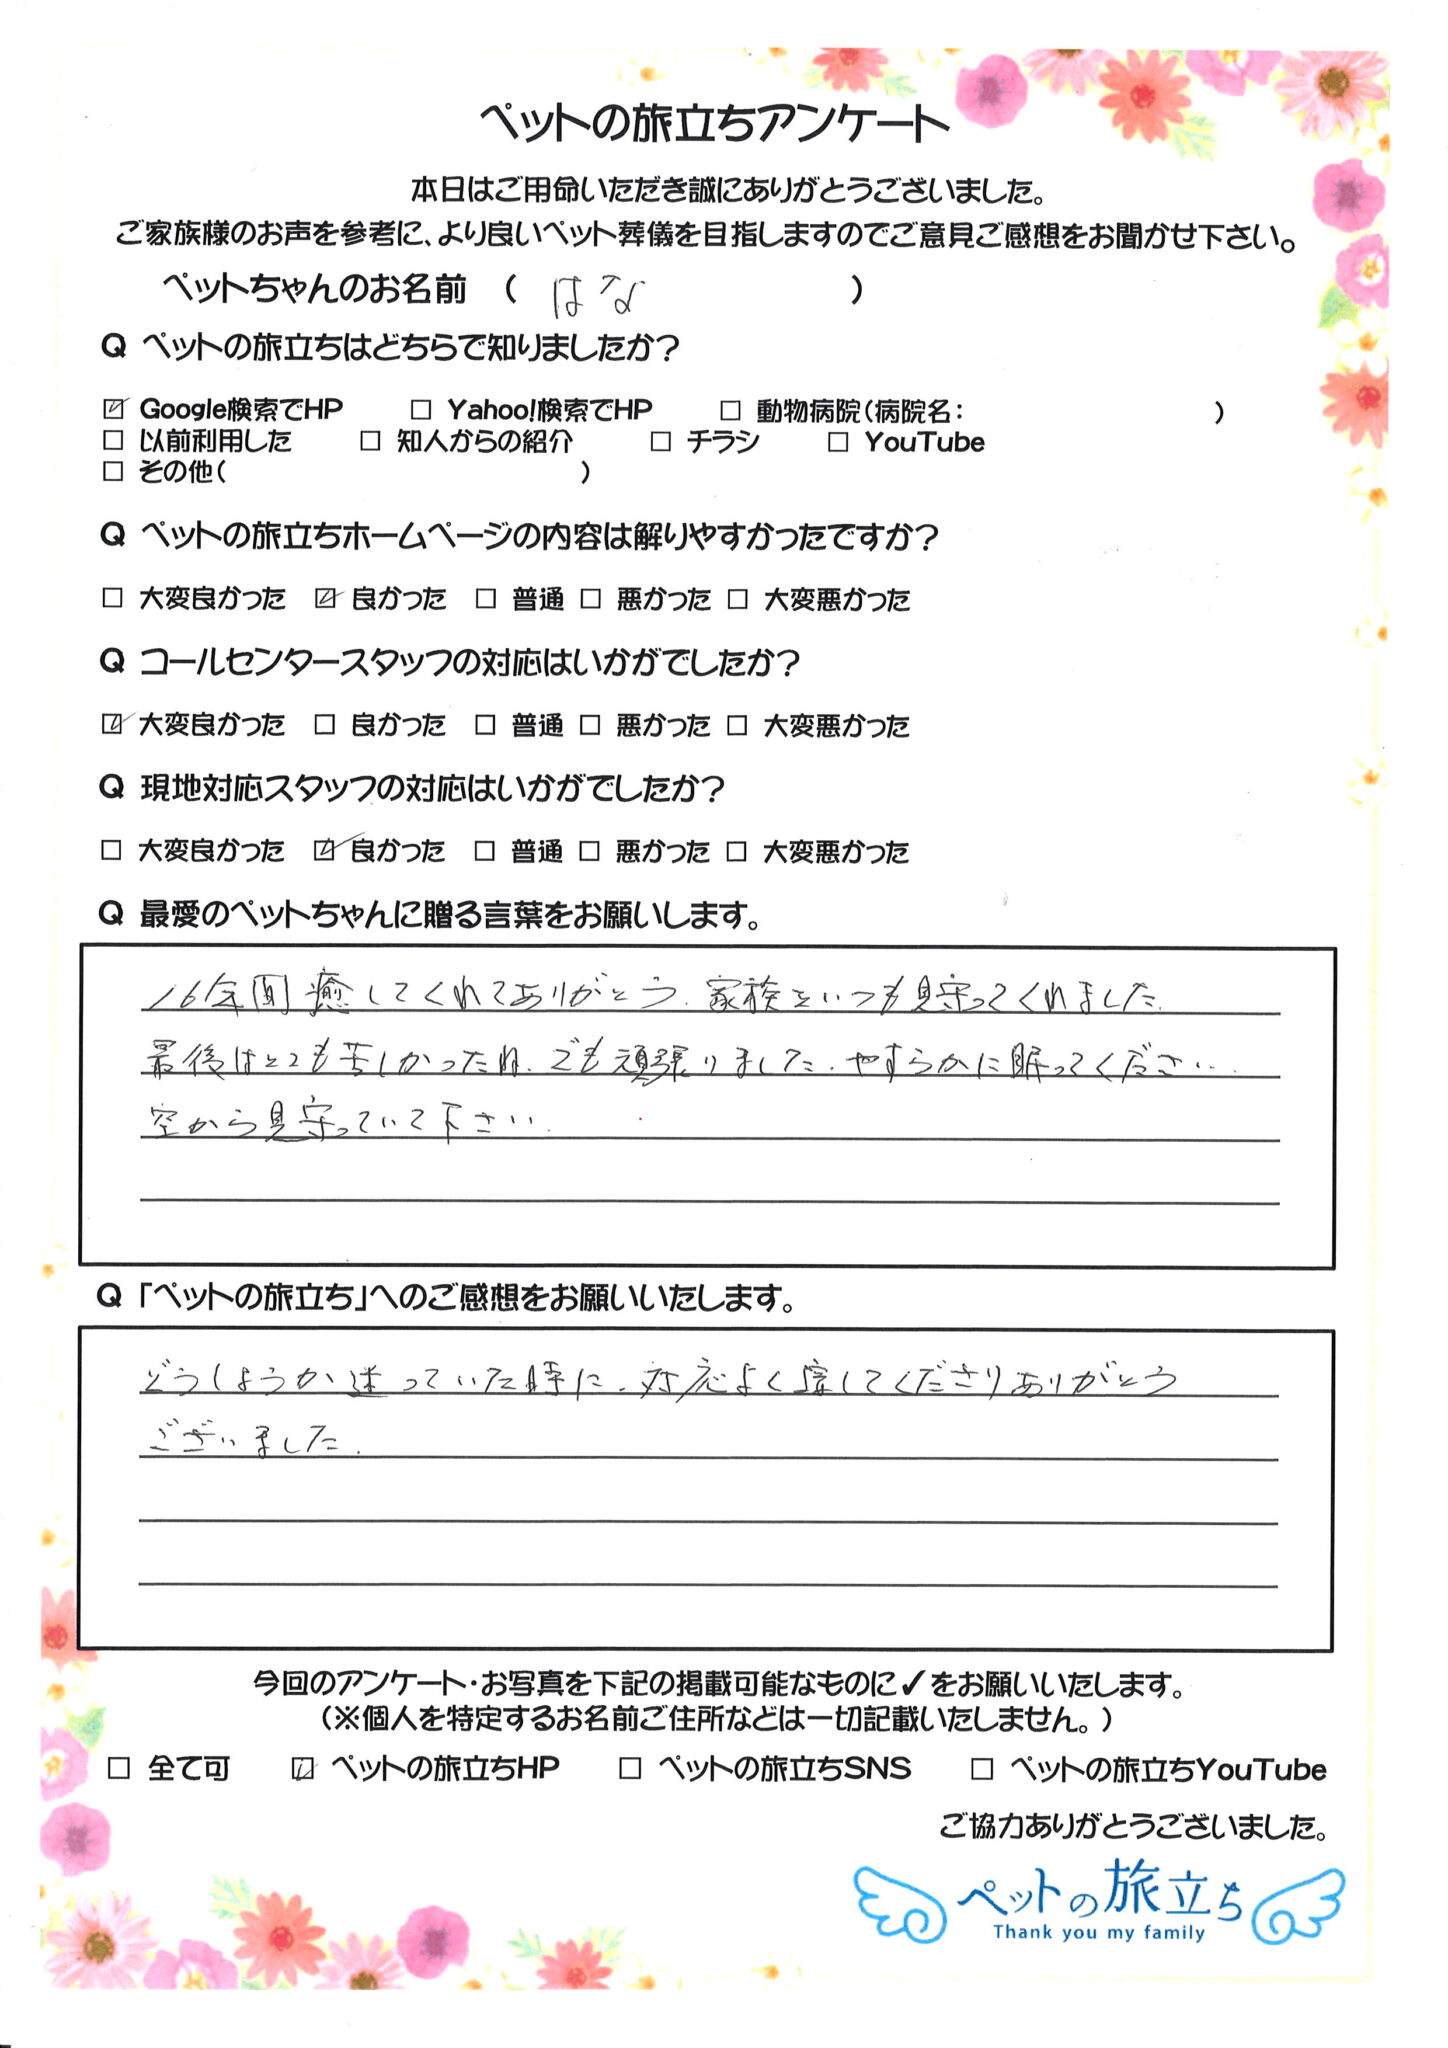 ペットの旅立ちアンケート
本日はご用命いただき誠にありがとうございました。
ご家族様のお声を参考に、より良いペット葬儀を目指しますのでご意見ご感想をお聞かせ下さい。
ペットちゃんのお名前 ( はな )
Q ペットの旅立ちはどちらで知りましたか?
☑ Google検索でHP □ Yahoo!検索でHP □ 動物病院(病院名: )
□ 以前利用した □ 知人からの紹介 □ チラシ □ YouTube
□ その他( )
Q ペットの旅立ちホームページの内容は解りやすかったですか?
□ 大変良かった ☑ 良かった □ 普通 □ 悪かった □ 大変悪かった
Q コールセンタースタッフの対応はいかがでしたか?
☑ 大変良かった □ 良かった □ 普通 □ 悪かった □ 大変悪かった
Q 現地対応スタッフの対応はいかがでしたか?
□ 大変良かった ☑ 良かった □ 普通 □ 悪かった □ 大変悪かった
Q 最愛のペットちゃんに贈る言葉をお願いします。
16年間癒してくれてありがとう。家族をいつも見守ってくれました。
最後はとても苦しかったね。でも頑張りました。やすらかに眠ってください。
空から見守っていて下さい。
Q 「ペットの旅立ち」へのご感想をお願いいたします。
どうしようか迷っていた時に、対応よく接してくださりありがとう
ございました。
今回のアンケート・お写真を下記の掲載可能なものに✓をお願いいたします。
(※個人を特定するお名前ご住所などは一切記載いたしません。)
□ 全て可 ☑ ペットの旅立ちHP □ ペットの旅立ちSNS □ ペットの旅立ちYouTube
ご協力ありがとうございました。
ペットの旅立ち
Thank you my family